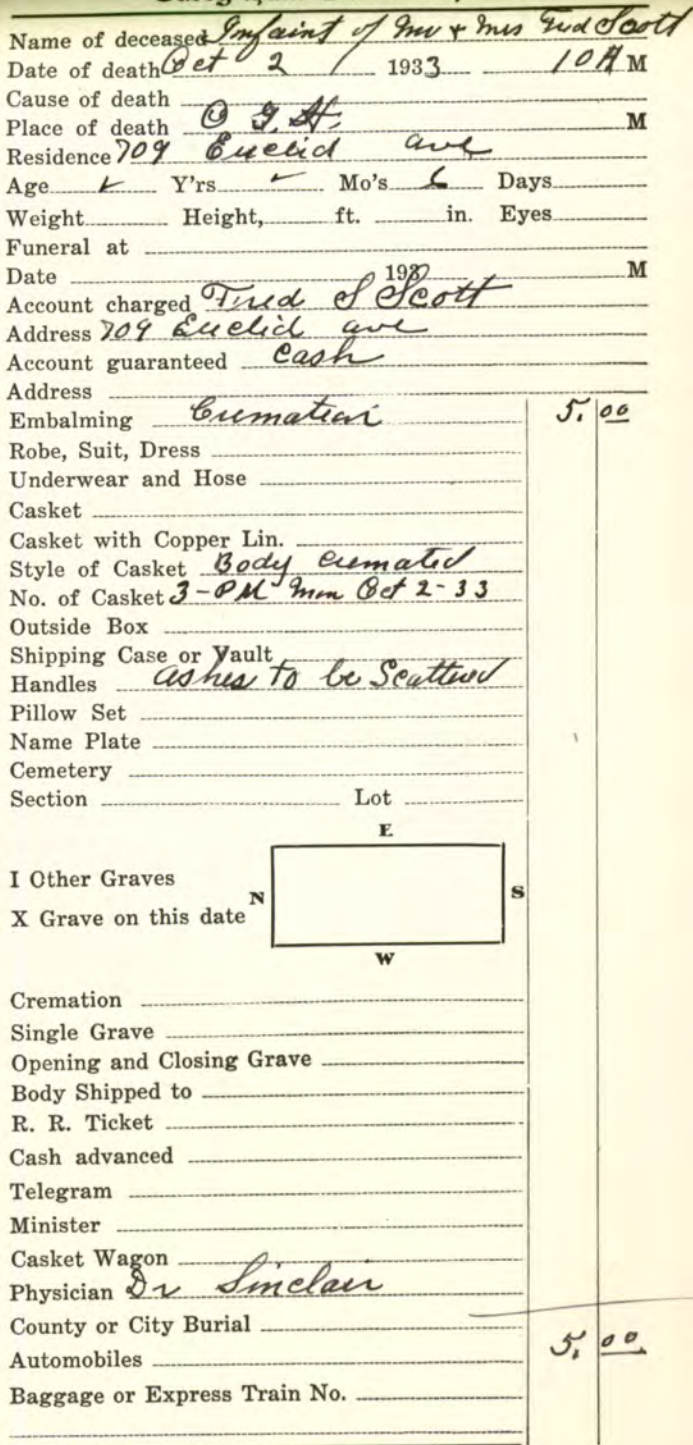 Name of deceased Infaint of Mr + Mrs Fred Scott
Date of death Oct 2 1933 10 A M
Cause of death
Place of death O. G. H. M
Residence 709 Euclid ave
Age ✓ Y'rs ✓ Mo's 6 Days
Weight Height, ft. in. Eyes
Funeral at
Date 193 M
Account charged Fred S Scott
Address 709 Euclid ave
Account guaranteed Cash
Address
Embalming Cremation 5.00
Robe, Suit, Dress
Underwear and Hose
Casket
Casket with Copper Lin.
Style of Casket Body cremated
No. of Casket 3-PM Mon Oct 2-33
Outside Box
Shipping Case or Vault
Handles ashes to be Scattered
Pillow Set
Name Plate
Cemetery
Section Lot
E
I Other Graves
N S
X Grave on this date
W
Cremation
Single Grave
Opening and Closing Grave
Body Shipped to
R. R. Ticket
Cash advanced
Telegram
Minister
Casket Wagon
Physician Dr Sinclair
County or City Burial
Automobiles 5.00
Baggage or Express Train No.